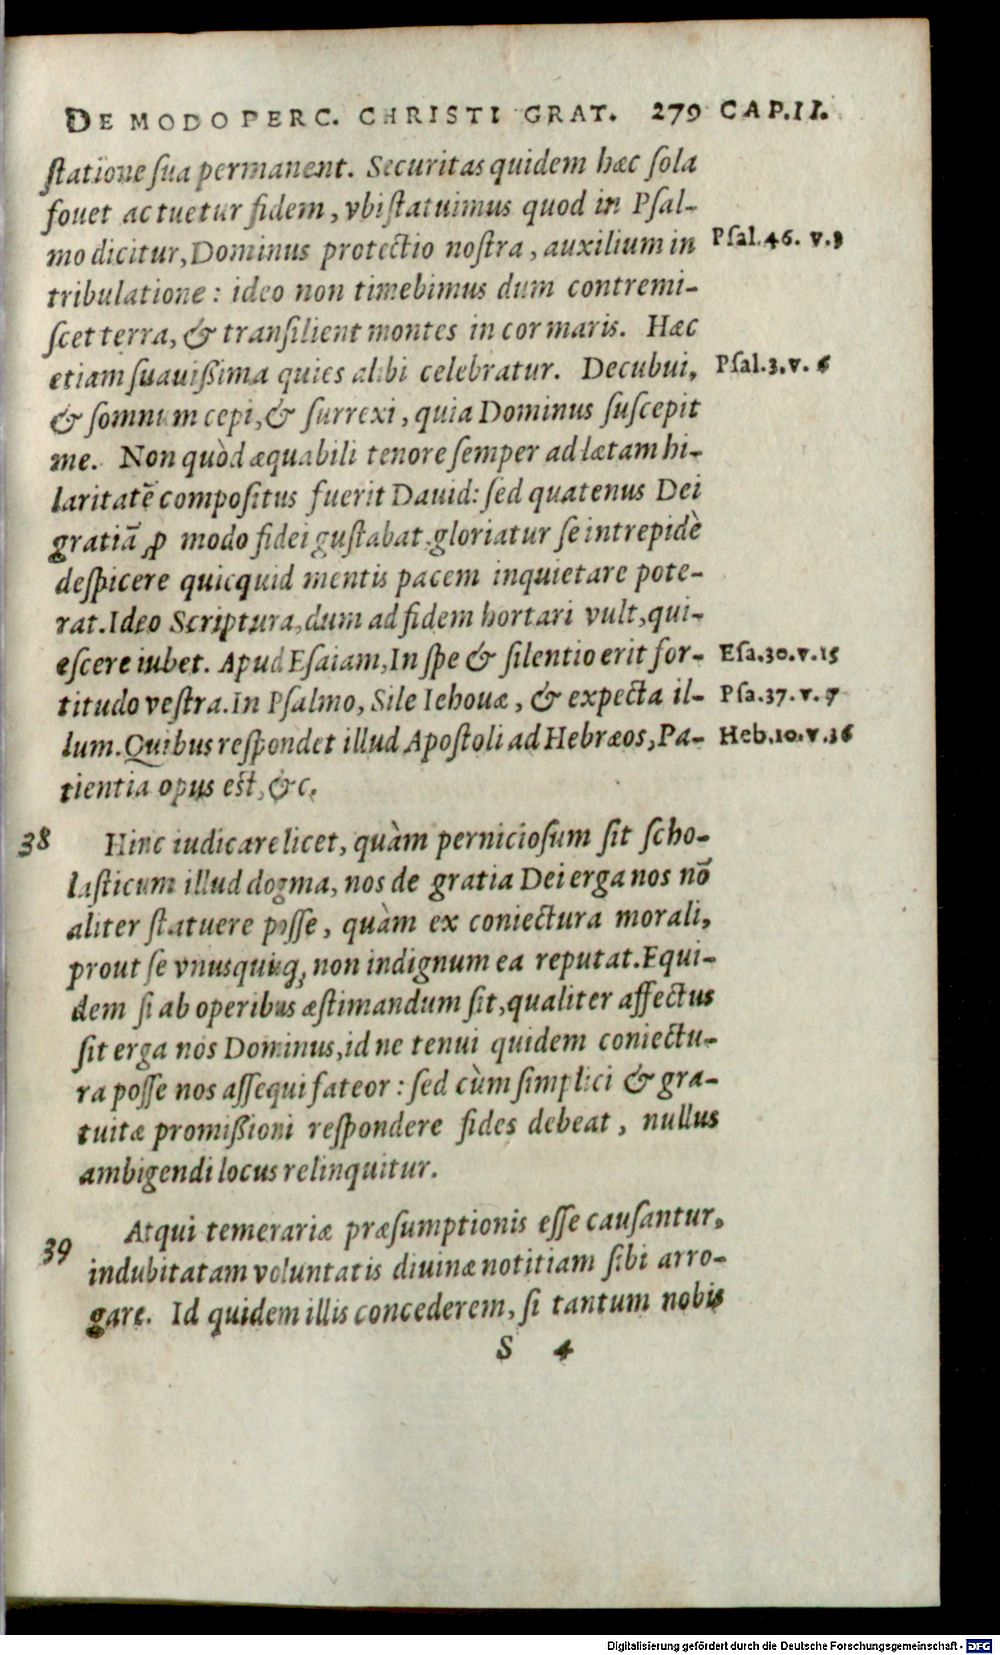 DE MODO PERC. CHRISTI GRAT. 279 CAP.II.
ſtatione ſua permanent. Securitas quidem hæc ſola
fouet ac tuetur fidem, vbi ſtatuimus quod in Pſal-
mo dicitur, Dominus protectio noſtra, auxilium in Pſal.46. v.3
tribulatione: ideo non timebimus dum contremi-
ſcet terra, & tranſilient montes in cor maris. Hæc
etiam ſuauißima quies alibi celebratur. Decubui, Pſal.3.v. 6
& ſomnum cepi, & ſurrexi, quia Dominus ſuſcepit
me. Non quòd æquabili tenore ſemper ad lætam hi-
laritatē compoſitus fuerit Dauid: ſed quatenus Dei
gratiā ꝓ modo fidei guſtabat, gloriatur ſe intrepidè
deſpicere quicquid mentis pacem inquietare pote-
rat. Ideo Scriptura, dum ad fidem hortari vult, qui-
eſcere iubet. Apud Eſaiam, In ſpe & ſilentio erit for- Eſa.30.v.15
titudo veſtra. In Pſalmo, Sile Iehouæ, & expecta il- Pſa.37. v. 7
lum. Quibus reſpondet illud Apoſtoli ad Hebræos, Pa- Heb.10.v.36
tientia opus eſt, &c.
38 Hinc iudicare licet, quàm pernicioſum ſit ſcho-
laſticum illud dogma, nos de gratia Dei erga nos nō
aliter ſtatuere poſſe, quàm ex coniectura morali,
prout ſe vnuſquiſq; non indignum ea reputat. Equi-
dem ſi ab operibus æſtimandum ſit, qualiter affectus
ſit erga nos Dominus, id ne tenui quidem coniectu-
ra poſſe nos aſſequi fateor: ſed cùm ſimplici & gra-
tuitæ promißioni reſpondere fides debeat, nullus
ambigendi locus relinquitur.
39 Atqui temerariæ præſumptionis eſſe cauſantur,
indubitatam voluntatis diuinæ notitiam ſibi arro-
gare. Id quidem illis concederem, ſi tantum nobis
S 4
Digitalisierung gefördert durch die Deutsche Forschungsgemeinschaft - DFG